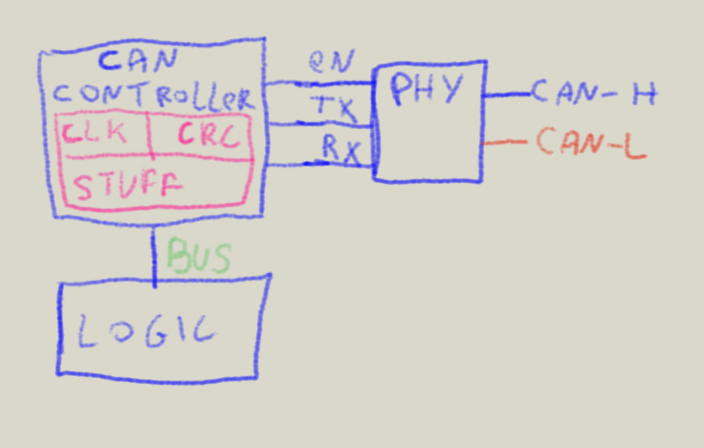 CAN
CONTROLLeR
CLK
CRC
STUFF
eN
TX
RX
PHY
CAN-H
CAN-L
BUS
LOGIC